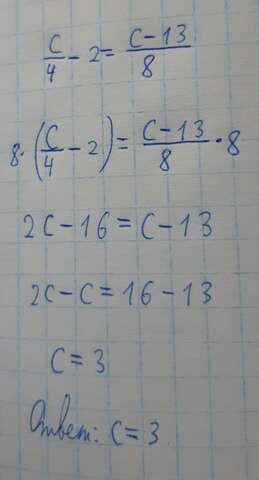 c/4 - 2 = (c-13)/8
8·(c/4 - 2) = (c-13)/8 · 8
2c-16 = c-13
2c-c = 16-13
c = 3
Ответ: c = 3.